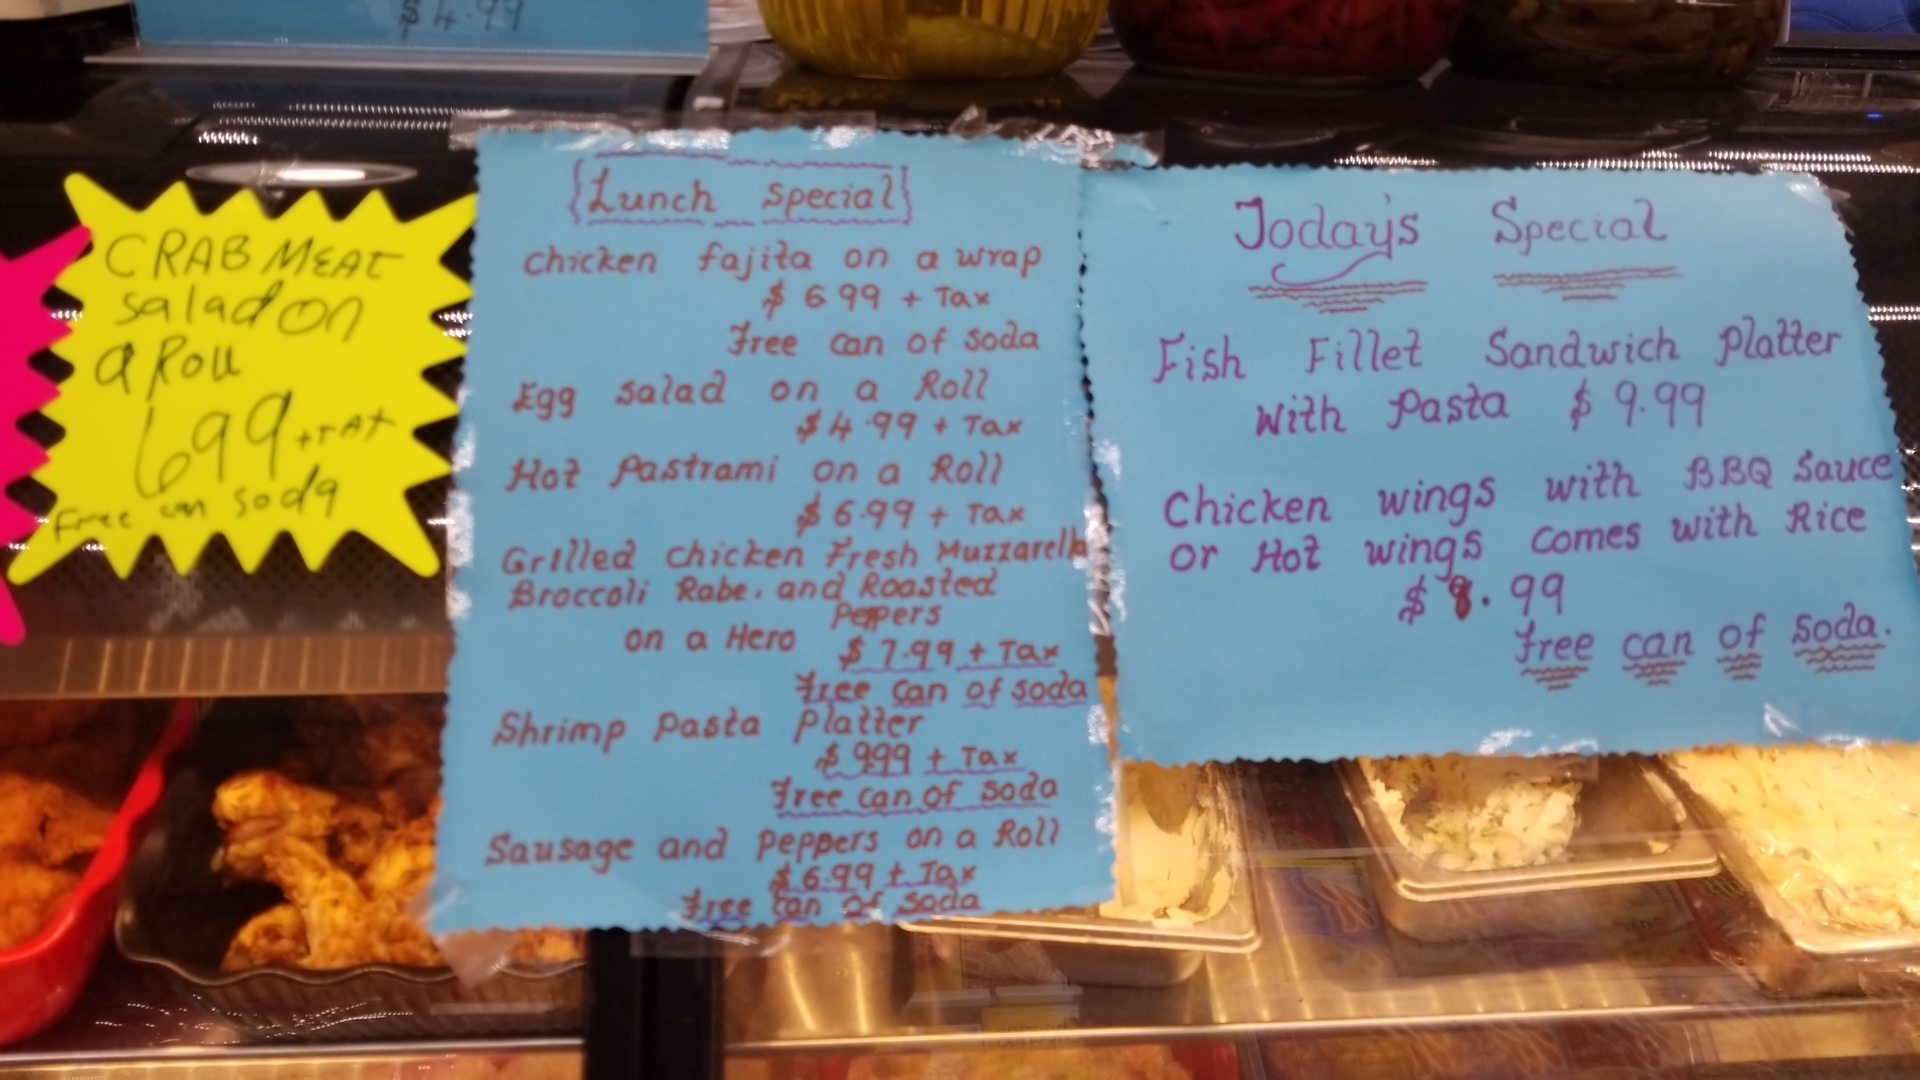 $4.99
CRAB MEAT
Salad on
a Roll
699 + TAX
Free can soda
Lunch Special
Chicken fajita on a wrap
$ 6.99 + Tax
Free can of soda
Egg Salad on a Roll
$4.99 + Tax
Hot Pastrami on a Roll
$6.99 + Tax
Grilled Chicken Fresh Muzzarella
Broccoli Rabe, and Roasted
Peppers
on a Hero $7.99 + Tax
Free can of soda
Shrimp Pasta Platter
$ 999 + Tax
Free can of soda
Sausage and Peppers on a Roll
$6.99 + Tax
Free can of soda
Today's Special
Fish Fillet Sandwich Platter
with Pasta $ 9.99
Chicken wings with BBQ Sauce
or Hot wings comes with Rice
$ .99
Free can of soda.